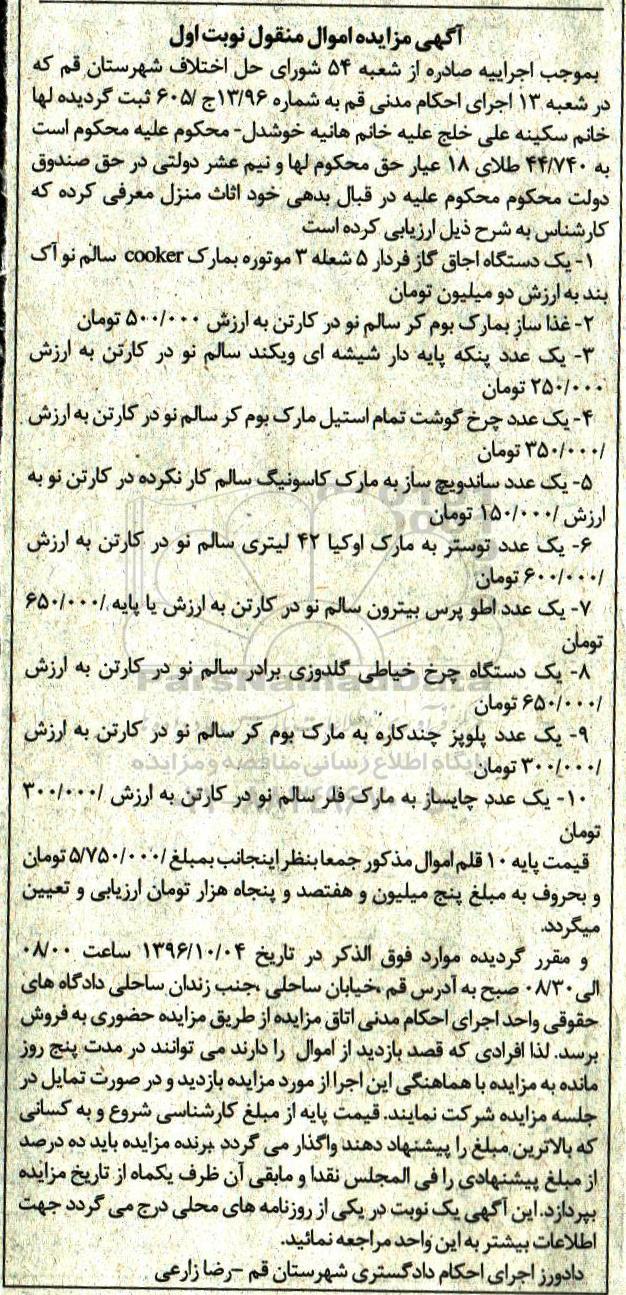 آگهی مزایده اموال منقول نوبت اول
بموجب اجراییه صادره از شعبه ۵۴ شورای حل اختلاف شهرستان قم که
در شعبه ۱۳ اجرای احکام مدنی قم به شماره ۱۳/۹۶ج/۶۰۵ ثبت گردیده لها
خانم سکینه علی خلج علیه خانم هانیه خوشدل- محکوم علیه محکوم است
به ۴۴/۷۴۰ طلای ۱۸ عیار حق محکوم لها و نیم عشر دولتی در حق صندوق
دولت محکوم محکوم علیه در قبال بدهی خود اثاث منزل معرفی کرده که
کارشناس به شرح ذیل ارزیابی کرده است
۱- یک دستگاه اجاق گاز فردار ۵ شعله ۳ موتوره بمارک cooker سالم نو آک
بند به ارزش دو میلیون تومان
۲- غذا ساز بمارک بوم کر سالم نو در کارتن به ارزش ۵۰۰/۰۰۰ تومان
۳- یک عدد پنکه پایه دار شیشه ای ویکند سالم نو در کارتن به ارزش
۲۵۰/۰۰۰ تومان
۴- یک عدد چرخ گوشت تمام استیل مارک بوم کر سالم نو در کارتن به ارزش
/۳۵۰/۰۰۰ تومان
۵- یک عدد ساندویچ ساز به مارک کاسونیگ سالم کار نکرده در کارتن نو به
ارزش /۱۵۰/۰۰۰ تومان
۶- یک عدد توستر به مارک اوکیا ۴۲ لیتری سالم نو در کارتن به ارزش
/۶۰۰/۰۰۰ تومان
۷- یک عدد اطو پرس بیترون سالم نو در کارتن به ارزش یا پایه /۶۵۰/۰۰۰
تومان
۸- یک دستگاه چرخ خیاطی گلدوزی برادر سالم نو در کارتن به ارزش
/۶۵۰/۰۰۰ تومان
۹- یک عدد پلوپز چندکاره به مارک بوم کر سالم نو در کارتن به ارزش
/۳۰۰/۰۰۰ تومان
۱۰- یک عدد چایساز به مارک فلر سالم نو در کارتن به ارزش /۳۰۰/۰۰۰
تومان
قیمت پایه ۱۰ قلم اموال مذکور جمعا بنظر اینجانب بمبلغ /۵/۷۵۰/۰۰۰ تومان
و بحروف به مبلغ پنج میلیون و هفتصد و پنجاه هزار تومان ارزیابی و تعیین
میگردد.
و مقرر گردیده موارد فوق الذکر در تاریخ ۱۳۹۶/۱۰/۰۴ ساعت ۰۸/۰۰
الی ۰۸/۳۰ صبح به آدرس قم ،خیابان ساحلی ،جنب زندان ساحلی دادگاه های
حقوقی واحد اجرای احکام مدنی اتاق مزایده از طریق مزایده حضوری به فروش
برسد. لذا افرادی که قصد بازدید از اموال را دارند می توانند در مدت پنج روز
مانده به مزایده با هماهنگی این اجرا از مورد مزایده بازدید و در صورت تمایل در
جلسه مزایده شرکت نمایند. قیمت پایه از مبلغ کارشناسی شروع و به کسانی
که بالاترین مبلغ را پیشنهاد دهند واگذار می گردد برنده مزایده باید ده درصد
از مبلغ پیشنهادی را فی المجلس نقدا و مابقی آن ظرف یکماه از تاریخ مزایده
بپردازد. این آگهی یک نوبت در یکی از روزنامه های محلی درج می گردد جهت
اطلاعات بیشتر به این واحد مراجعه نمائید.
دادورز اجرای احکام دادگستری شهرستان قم -رضا زارعی
ParsNamadData
پایگاه اطلاع رسانی مناقصه و مزایده